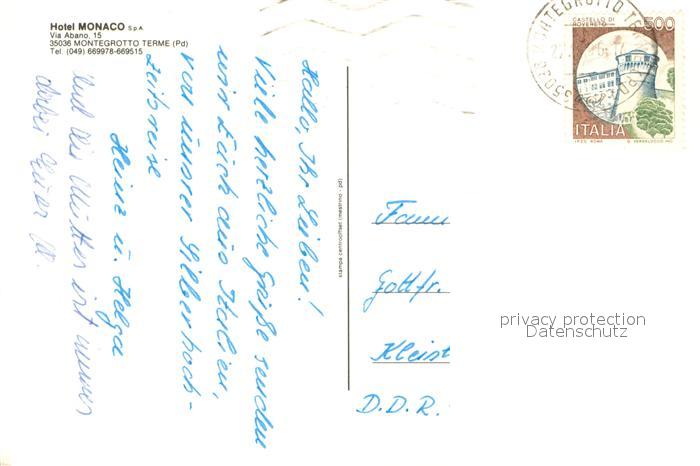 Hotel MONACO S.p.A.
Via Abano, 15
35036 MONTEGROTTO TERME (Pd)
Tel. (049) 669978-669515
Hallo, Ihr Lieben!
Viele herzliche Grüße senden
wir Euch aus Italien,
von unserer Silberhoch-
zeitsreise
Heinz u. Helga
Und die Mutter ist immer
dabei
stampa centrooffset (mestrino - pd)
MONTEGROTTO TE
500
CASTELLO DI
ROVERETO
ITALIA
Fam
Gottfr.
Kleist
D.D.R.
privacy protection
Datenschutz